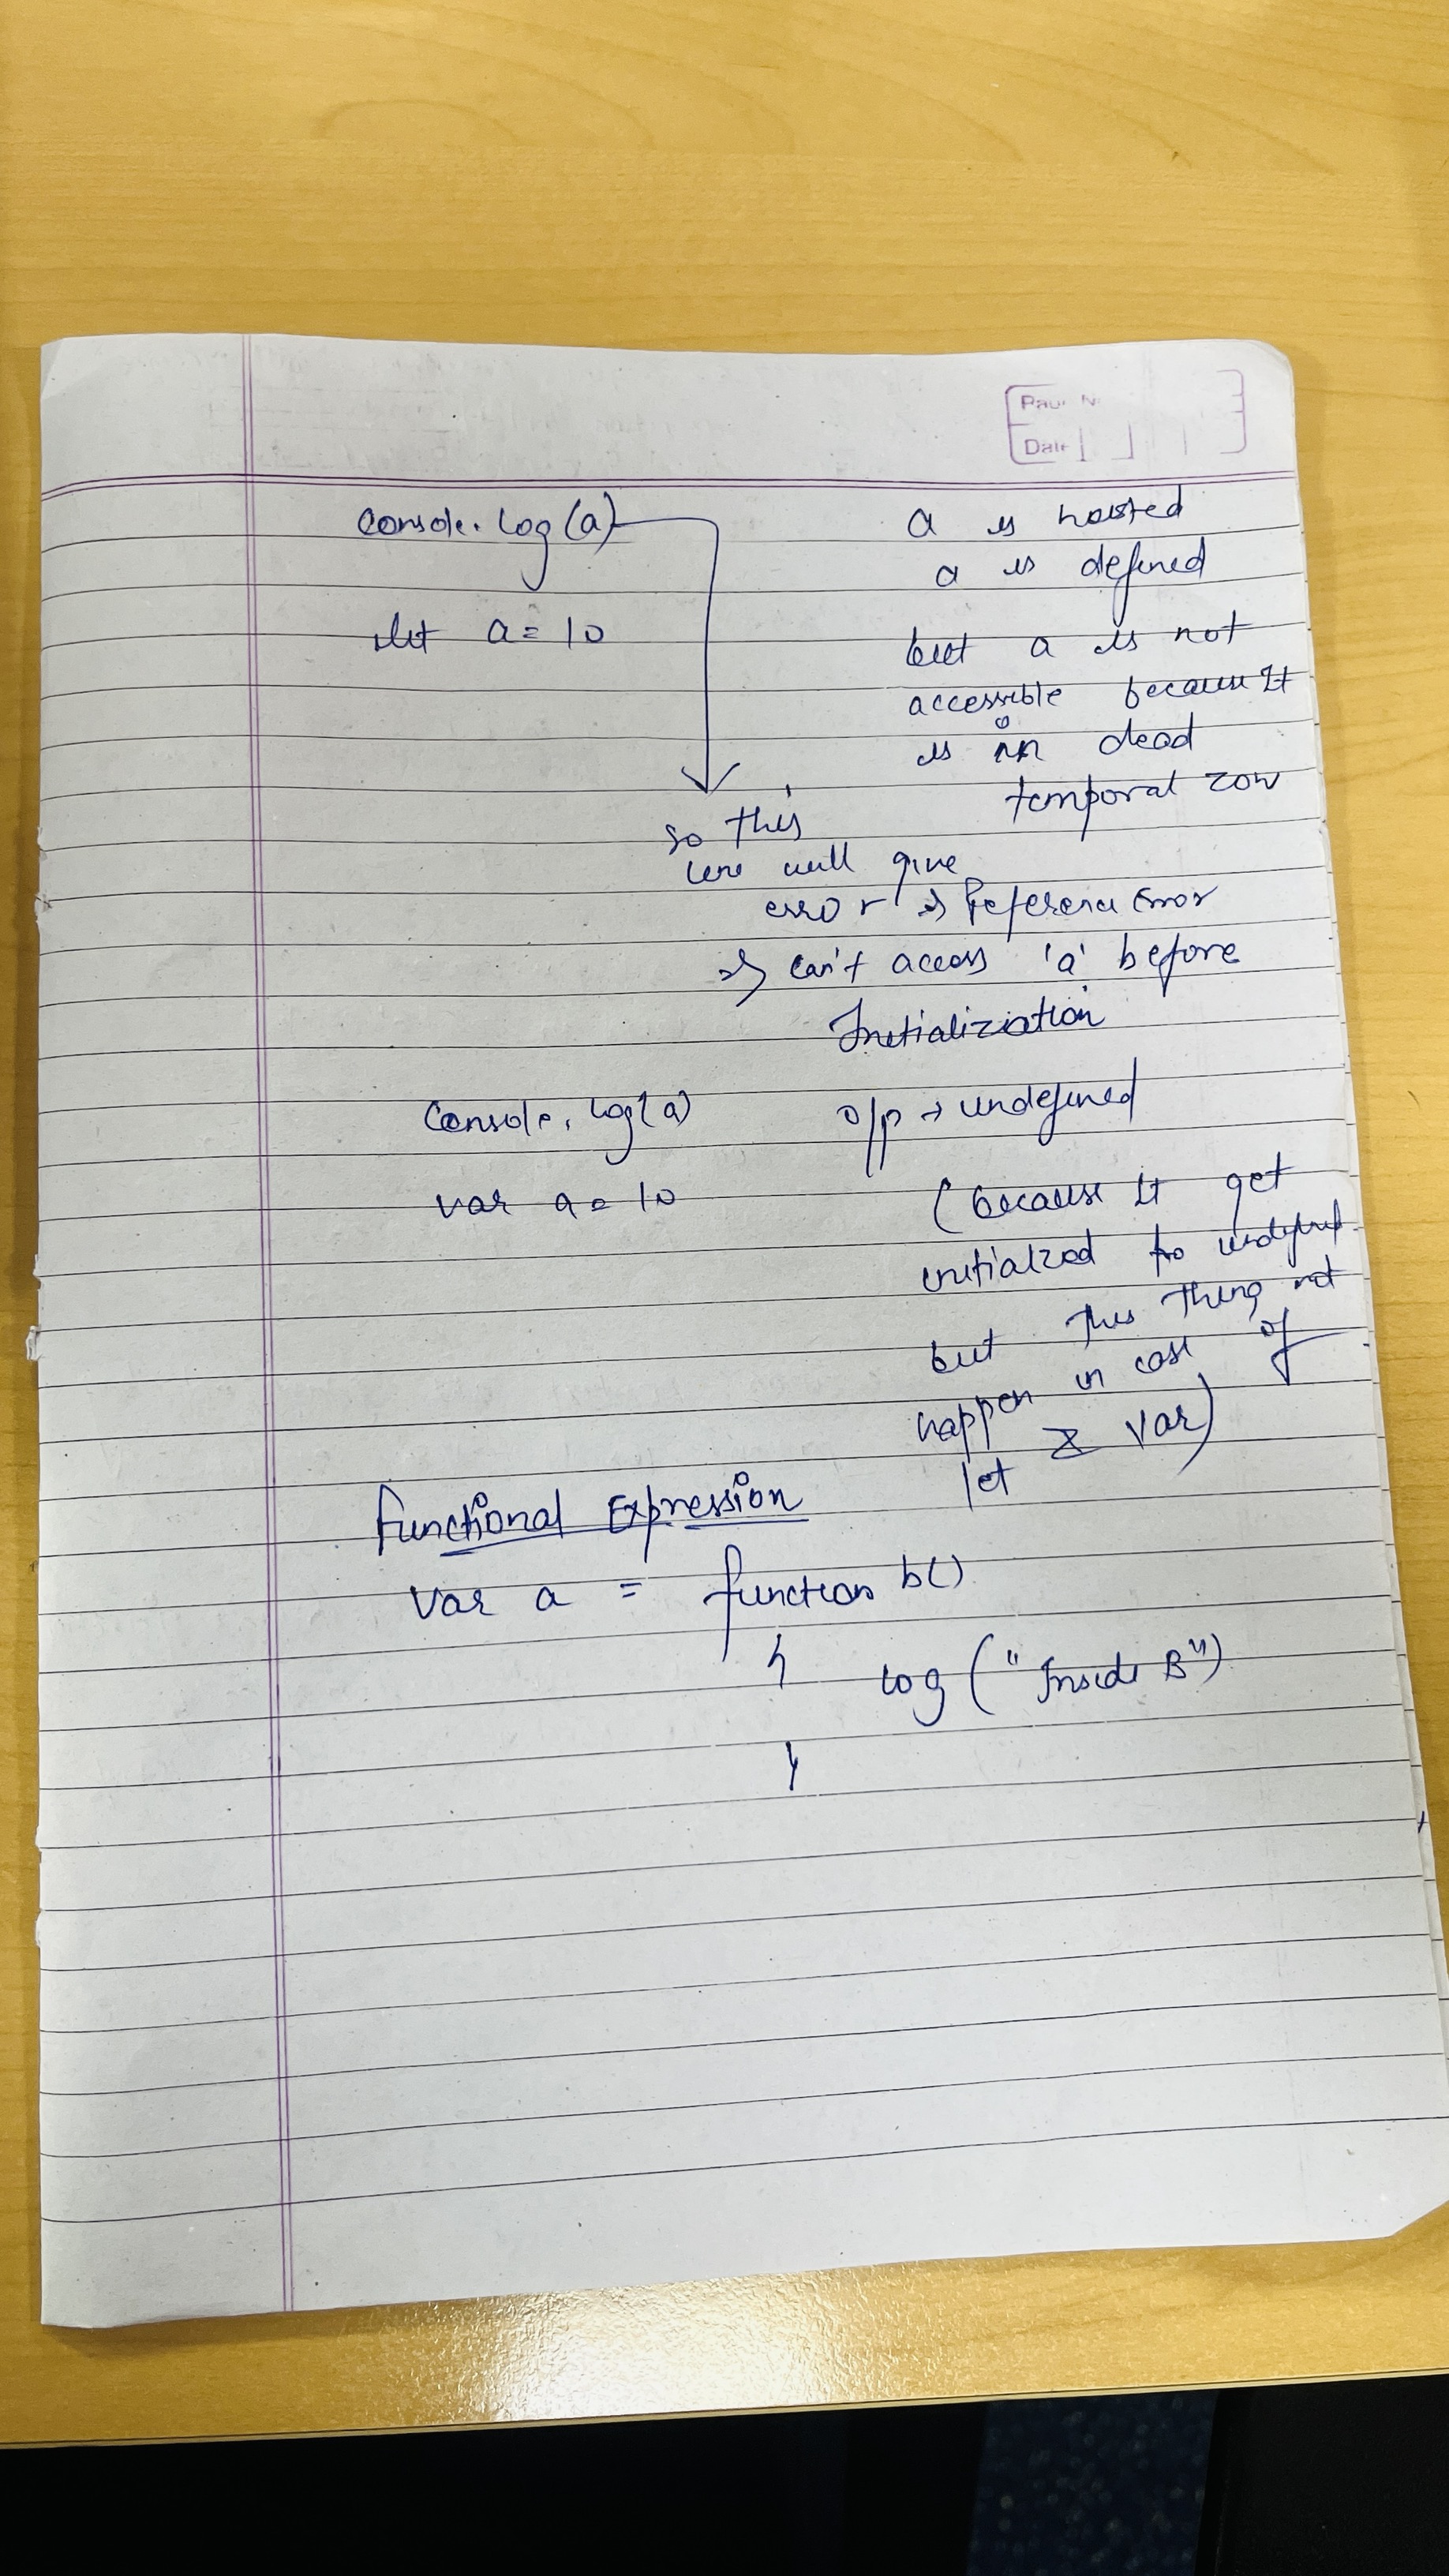 Date
console.log(a)
let a = 10
a is hoisted
a is defined
but a is not
accessible because It
is in dead
temporal zone
so this
line will give
error => Reference Error
=> can't access 'a' before
Initializiation
Console.log(a)
var a = 10
o/p → undefined
(because it get
initialzed to undefined
but this thing not
happen in case of
let & var)
Functional Expression
var a = function b()
{ log("Inside B")
}